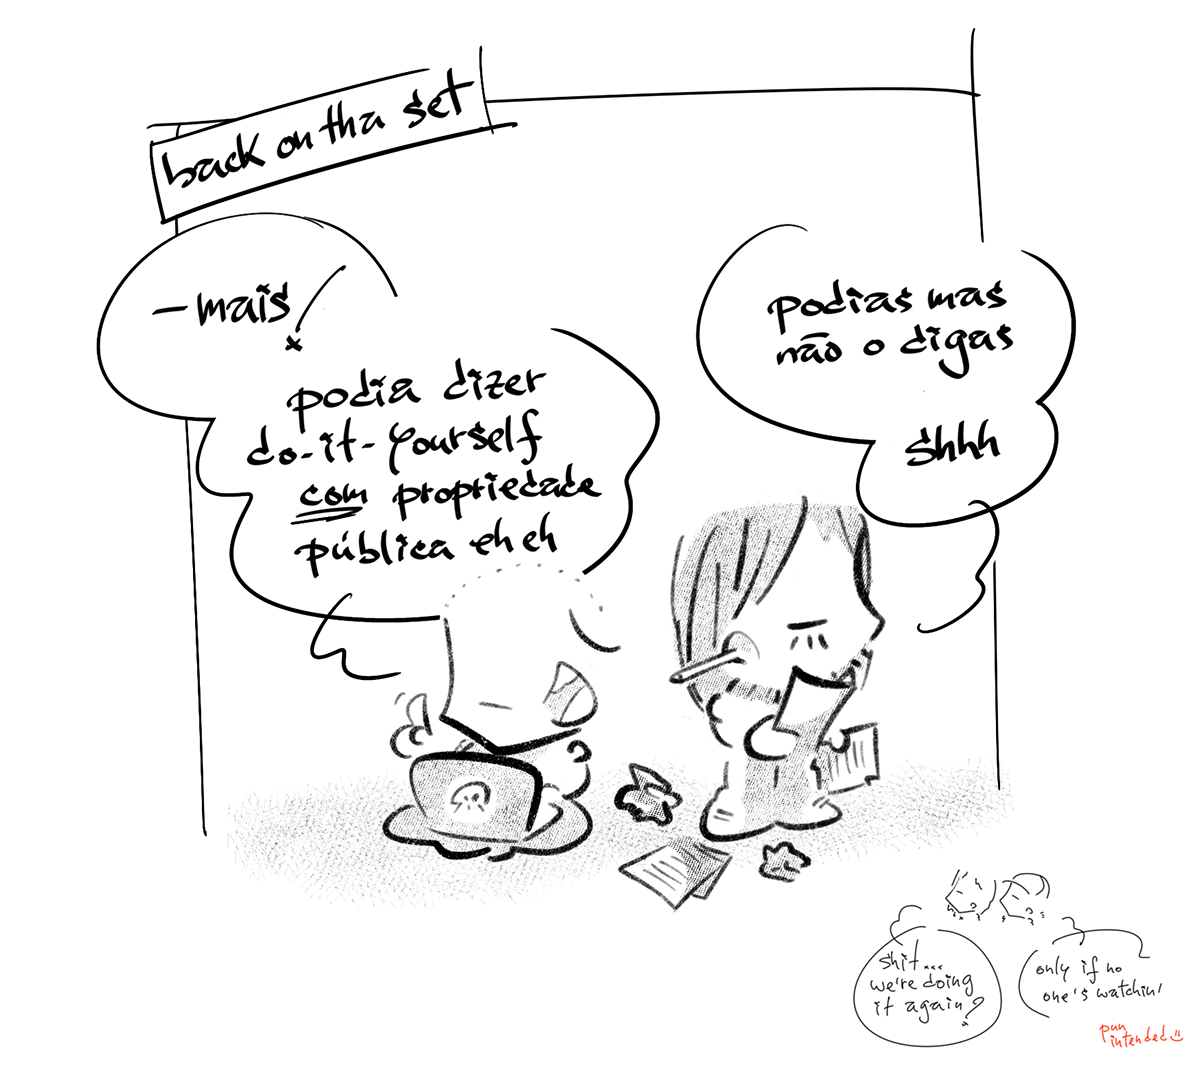 back on tha set
- mais
podia dizer
do-it-yourself
com propriedade
pública eh eh
podias mas
não o digas
shhh
shit...
we're doing
it again?
only if no
one's watchin'
pun
intended